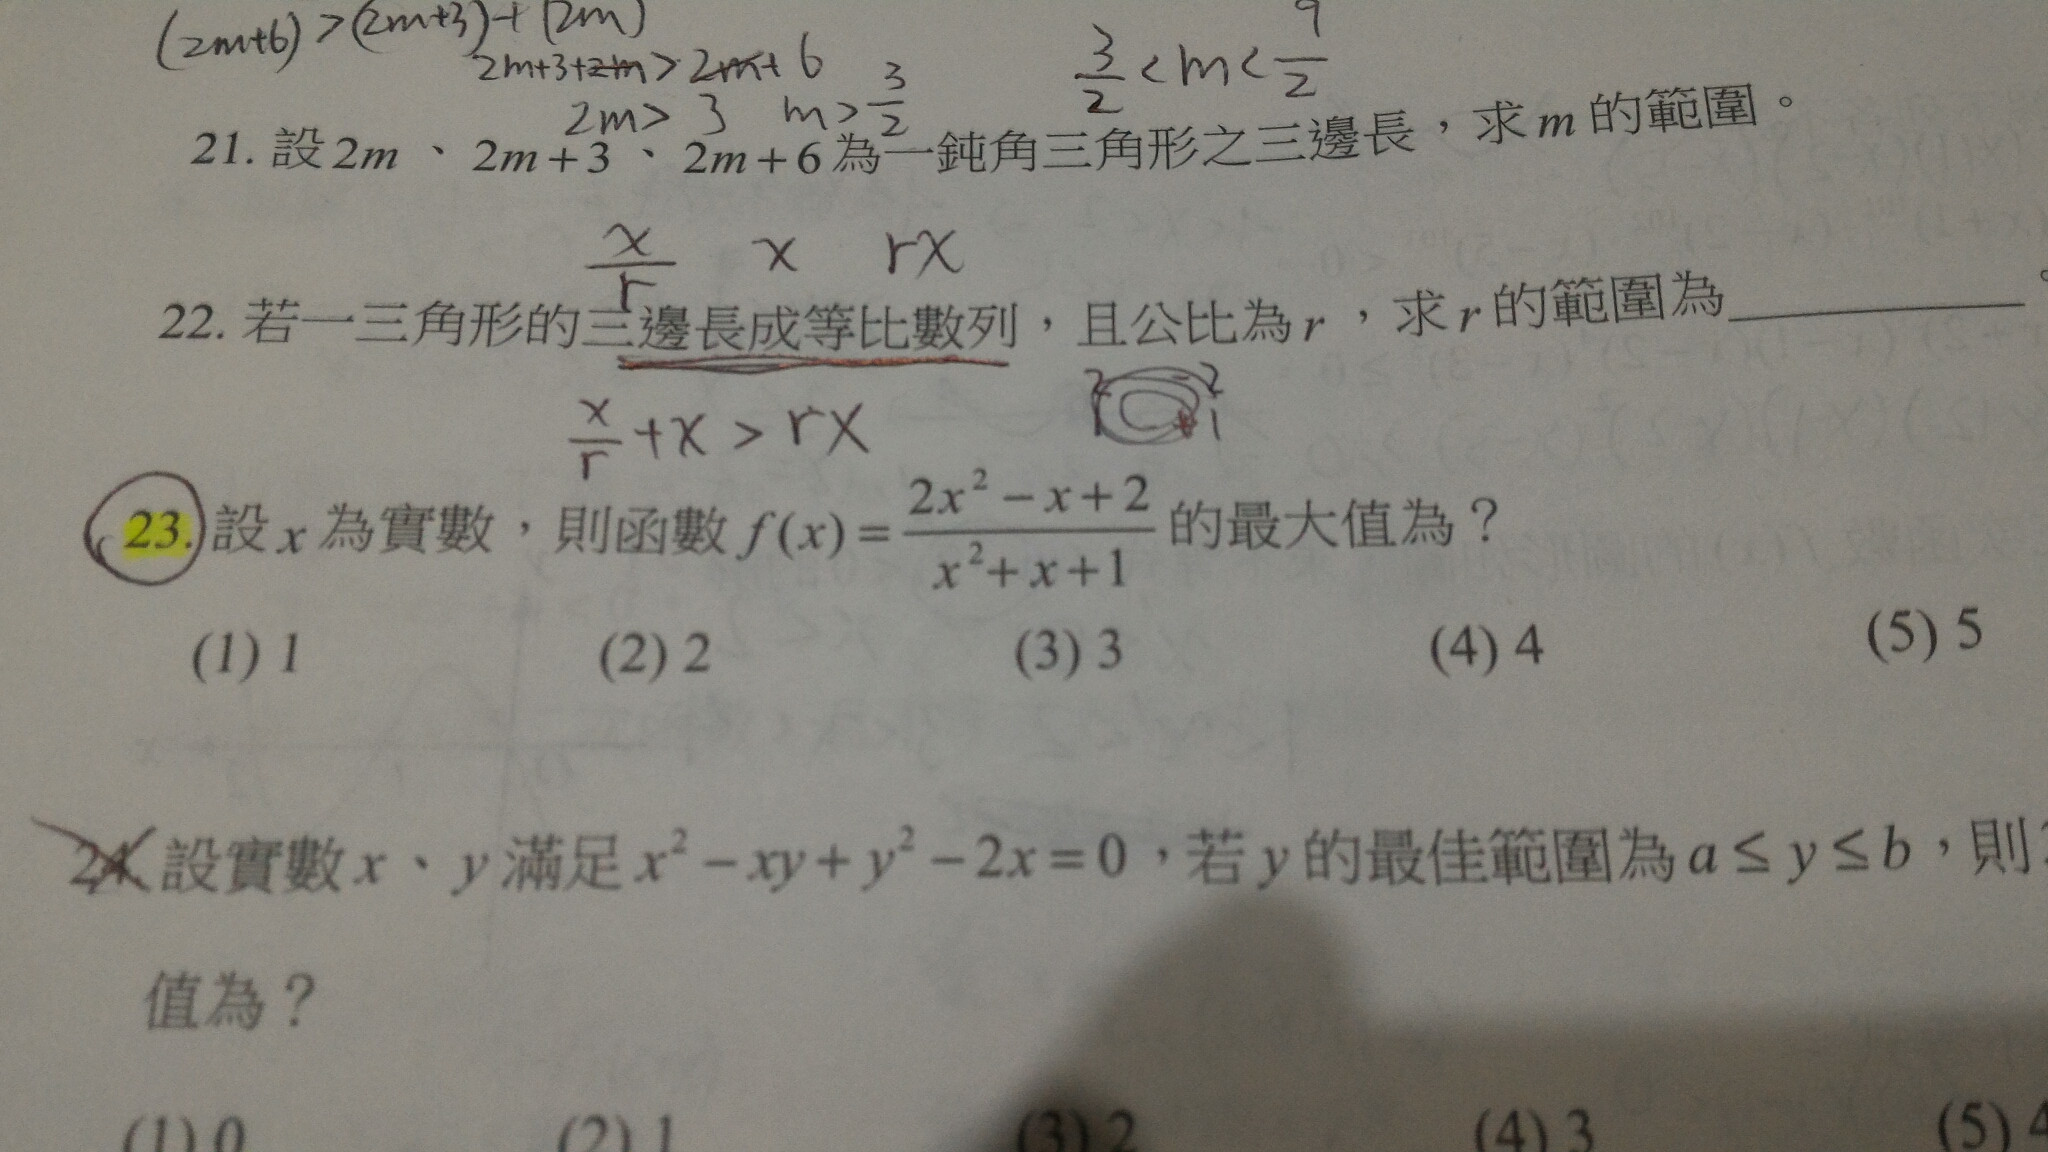 (2m+6) > (2m+3) + (2m)
2m+3+2m > 2m+6
3/2 < m < 9/2
2m > 3 m > 3/2
21. 設 2m、2m+3、2m+6 為一鈍角三角形之三邊長,求 m 的範圍。
x/r x rx
22. 若一三角形的三邊長成等比數列,且公比為 r,求 r 的範圍為＿＿＿＿＿。
x/r + x > rx
23. 設 x 為實數,則函數 f(x) = (2x² − x + 2)/(x² + x + 1) 的最大值為?
(1) 1 (2) 2 (3) 3 (4) 4 (5) 5
24. 設實數 x、y 滿足 x² − xy + y² − 2x = 0,若 y 的最佳範圍為 a ≤ y ≤ b,則
值為?
(1) 0 (2) 1 (3) 2 (4) 3 (5) 4